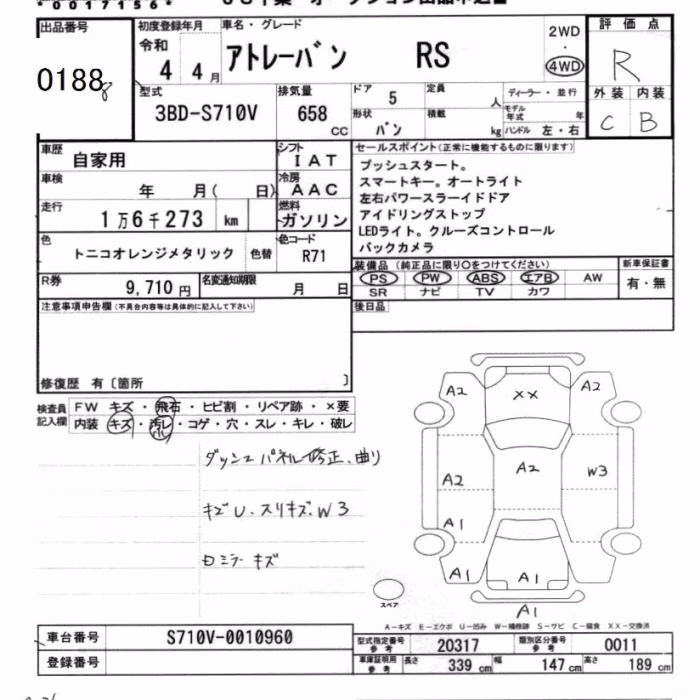 *00017156*
出品番号
0188
8
初度登録年月
令和
4 4月
車名・グレード
アトレーバン RS
2WD
・
4WD
評価点
R
外装 内装
C B
型式
3BD-S710V
排気量
658
CC
ドア
5
定員
人
形状
バン
積載
kg
ディーラー・並行
モデル年式
年
ハンドル 左・右
車歴
自家用
シフト
IAT
車検
年 月( 日)
冷房
AAC
走行
1万6千273 km
燃料
ガソリン
色
トニコオレンジメタリック
色替
色コード
R71
R券
9,710円
名変通知期限
月 日
セールスポイント(正常に機能するものに限ります)
プッシュスタート。
スマートキー。オートライト
左右パワースライドドア
アイドリングストップ
LEDライト。クルーズコントロール
バックカメラ
装備品 (純正品に限り○をつけてください)
PS PW ABS エアB AW
SR ナビ TV カワ
新車保証書
有・無
後日品
注意事項申告欄(不具合内容等は具体的に記入して下さい)
修復歴 有〔箇所 〕
検査員
記入欄
FW キズ・飛石・ヒビ割・リペア跡・×要
内装 キズ・汚レ・コゲ・穴・スレ・キレ・破レ
小
ダッシュパネル修正、曲り
キズU、スリキズ、W3
ロミラーキズ
A2
XX
A2
A2
A2
W3
A1
A1
A1
A1
A1
スペア
A-キズ E-エクボ U-凹み W-補修跡 S-サビ C-腐食 XX-交換済
車台番号
S710V-0010960
登録番号
型式指定番号
参考
20317
類別区分番号
参考
0011
車庫証明用
参考
長さ
339 cm
幅
147 cm
高さ
189 cm